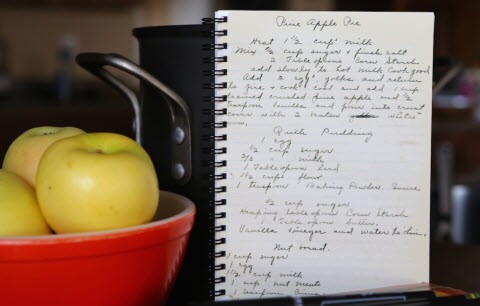 Pine Apple Pie
Heat 1 1/2 cup milk
Mix 1/2 cup sugar & pinch salt
2 Tablespoons Corn Starch
add slowly to hot milk Cook good
Add 2 egg yolks and return
to fire & cook cool and add 1 cup
drained crushed pine apple and 1/2
teaspoon Vanilla and pour into crust
cover with 2 whites
Pudding
1 egg
1/2 cup sugar
2/3 " milk
1 Tablespoon lard
1 1/2 cup flour
1 teaspoon Baking Powder. Sauce
1/2 cup sugar
Heaping tablespoon Corn Starch
1 Table spoon butter.
Vanilla vinegar and water to
Nut bread.
1 cup sugar
1 egg
1 1/2 cup milk
1 cup nut meats
1 teaspoon